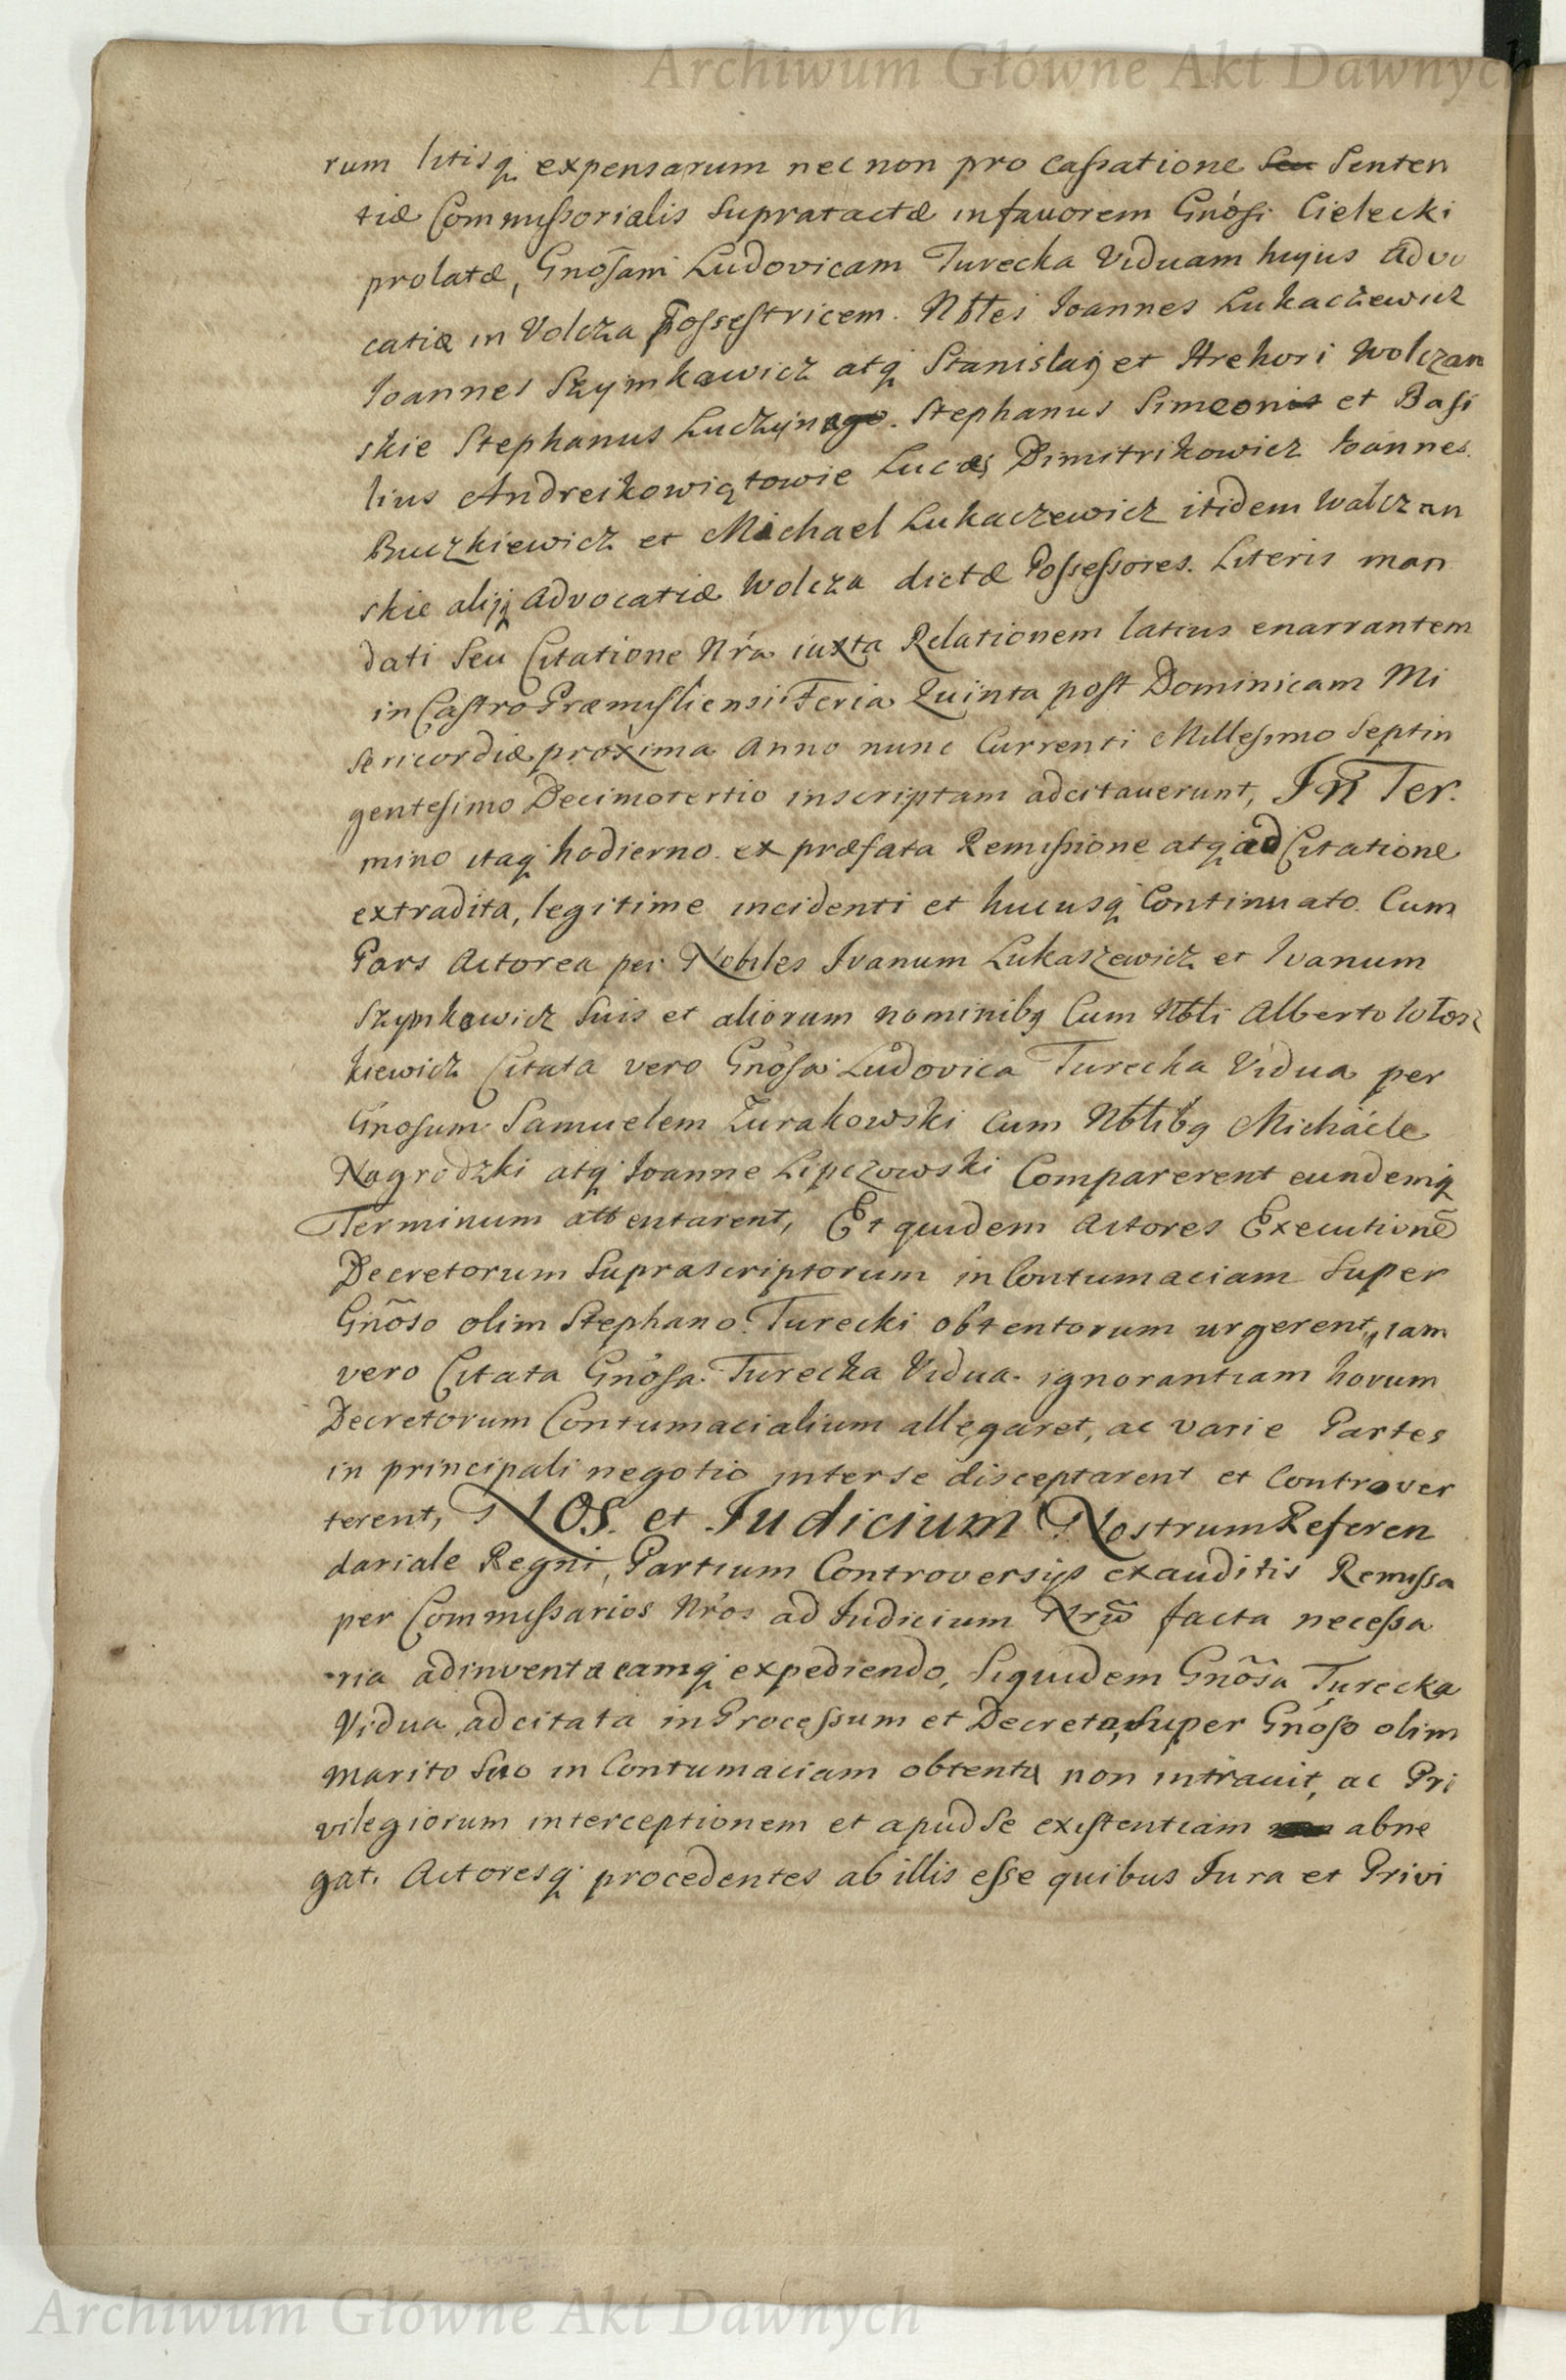 Archiwum Główne Akt Dawnych
rum litisq expensarum nec non pro Caſsatione Seu Senten
tiæ Commiſsorialis Supratactæ in fauorem Gnósi Cielecki
prolatæ, Gnõsam Ludovicam Turecka Viduam hujus Advo
catiæ in Volcza Poſseſtricem. Nbłes Ioannes Lukaczewicz
Ioannes Szymkowicz atq Stanislaij et Hrehori Wolczan
skie Stephanus Stephanus Simeonis et Basi
lius Andreikowiątowie Lucas Dimitrikowicz Ioannes
Buczkiewicz et Michael Lukaczewicz itidem Walczan
skie alijq Advocatiæ Wolcza dictæ Poſseſsores. Literis man
dati Seu Citatione Nrá iuxta Relationem latius enarrantem
in Castro Præmisliensi Feria Quinta post Dominicam Mi
sericordiæ proxima Anno nunc Currenti Millesimo Septin
gentesimo Decimotertio inscriptam adcitauerunt, In Ter.
mino itaq hodierno ex præfata Remiſsione atq ad Citatione
extradita, legitime incidenti et hucusq Continuato. Cum
Pars Actorea per Nobiles Ivanum Lukaszewicz et Ivanum
Szymkowicz Suis et aliorum nominibq Cum Nbli Alberto
kiewicz Citata vero Gnósa Ludovica Turecka Vidua per
Gnosum Samuelem Zurakowski Cum Nblibq Michaéle
Nagrodzki atq Ioanne Lipczowski Comparerent eundemq
Terminum attentarent, Et quidem Actores Executionẽ
Decretorum Suprascriptorum in Contumaciam Super
Gnõso olim Stephano Turecki obtentorum urgerent, iam
vero Citata Gnósa Turecka Vidua ignorantiam horum
Decretorum Contumacialium allegaret, ac varie Partes
in principali negotio inter se disceptarent et Controver
terent, NOS. et Iudicium Nostrum Referen
dariale Regni, Partium Controversijs exauditis Remiſsa
per Commiſsarios Nros ad Iudicium Nrũ facta neceſsa
ria adinventa eamq expediendo, Siquidem Gnõsa Turecka
Vidua adcitata in Proceſsum et Decreta, Super Gnóso olim
Marito Suo in Contumaciam obtenta non intrauit, ac Pri
vilegiorum interceptionem et apud Se existentiam abne
gat. Actoresq procedentes ab illis eſse quibus Iura et Privi
Archiwum Główne Akt Dawnych